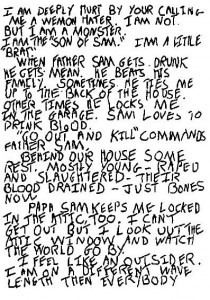 I AM DEEPLY HURT BY YOUR CALLING
ME A WEMON HATER. I AM NOT.
BUT I AM A MONSTER.
I AM THE "SON OF SAM." I AM A LITTLE
"BRAT".
WHEN FATHER SAM GETS DRUNK
HE GETS MEAN. HE BEATS HIS
FAMILY. SOMETIMES HE TIES ME
UP TO THE BACK OF THE HOUSE.
OTHER TIMES HE LOCKS ME
IN THE GARAGE. SAM LOVES TO
DRINK BLOOD.
"GO OUT AND KILL" COMMANDS
FATHER SAM.
BEHIND OUR HOUSE SOME
REST. MOSTLY YOUNG - RAPED
AND SLAUGHTERED - THEIR
BLOOD DRAINED - JUST BONES
NOW
PAPA SAM KEEPS ME LOCKED
IN THE ATTIC, TOO. I CAN'T
GET OUT BUT I LOOK OUT THE
ATTIC WINDOW AND WATCH
THE WORLD GO BY.
I FEEL LIKE AN OUTSIDER.
I AM ON A DIFFERENT WAVE
LENGTH THEN EVERYBODY